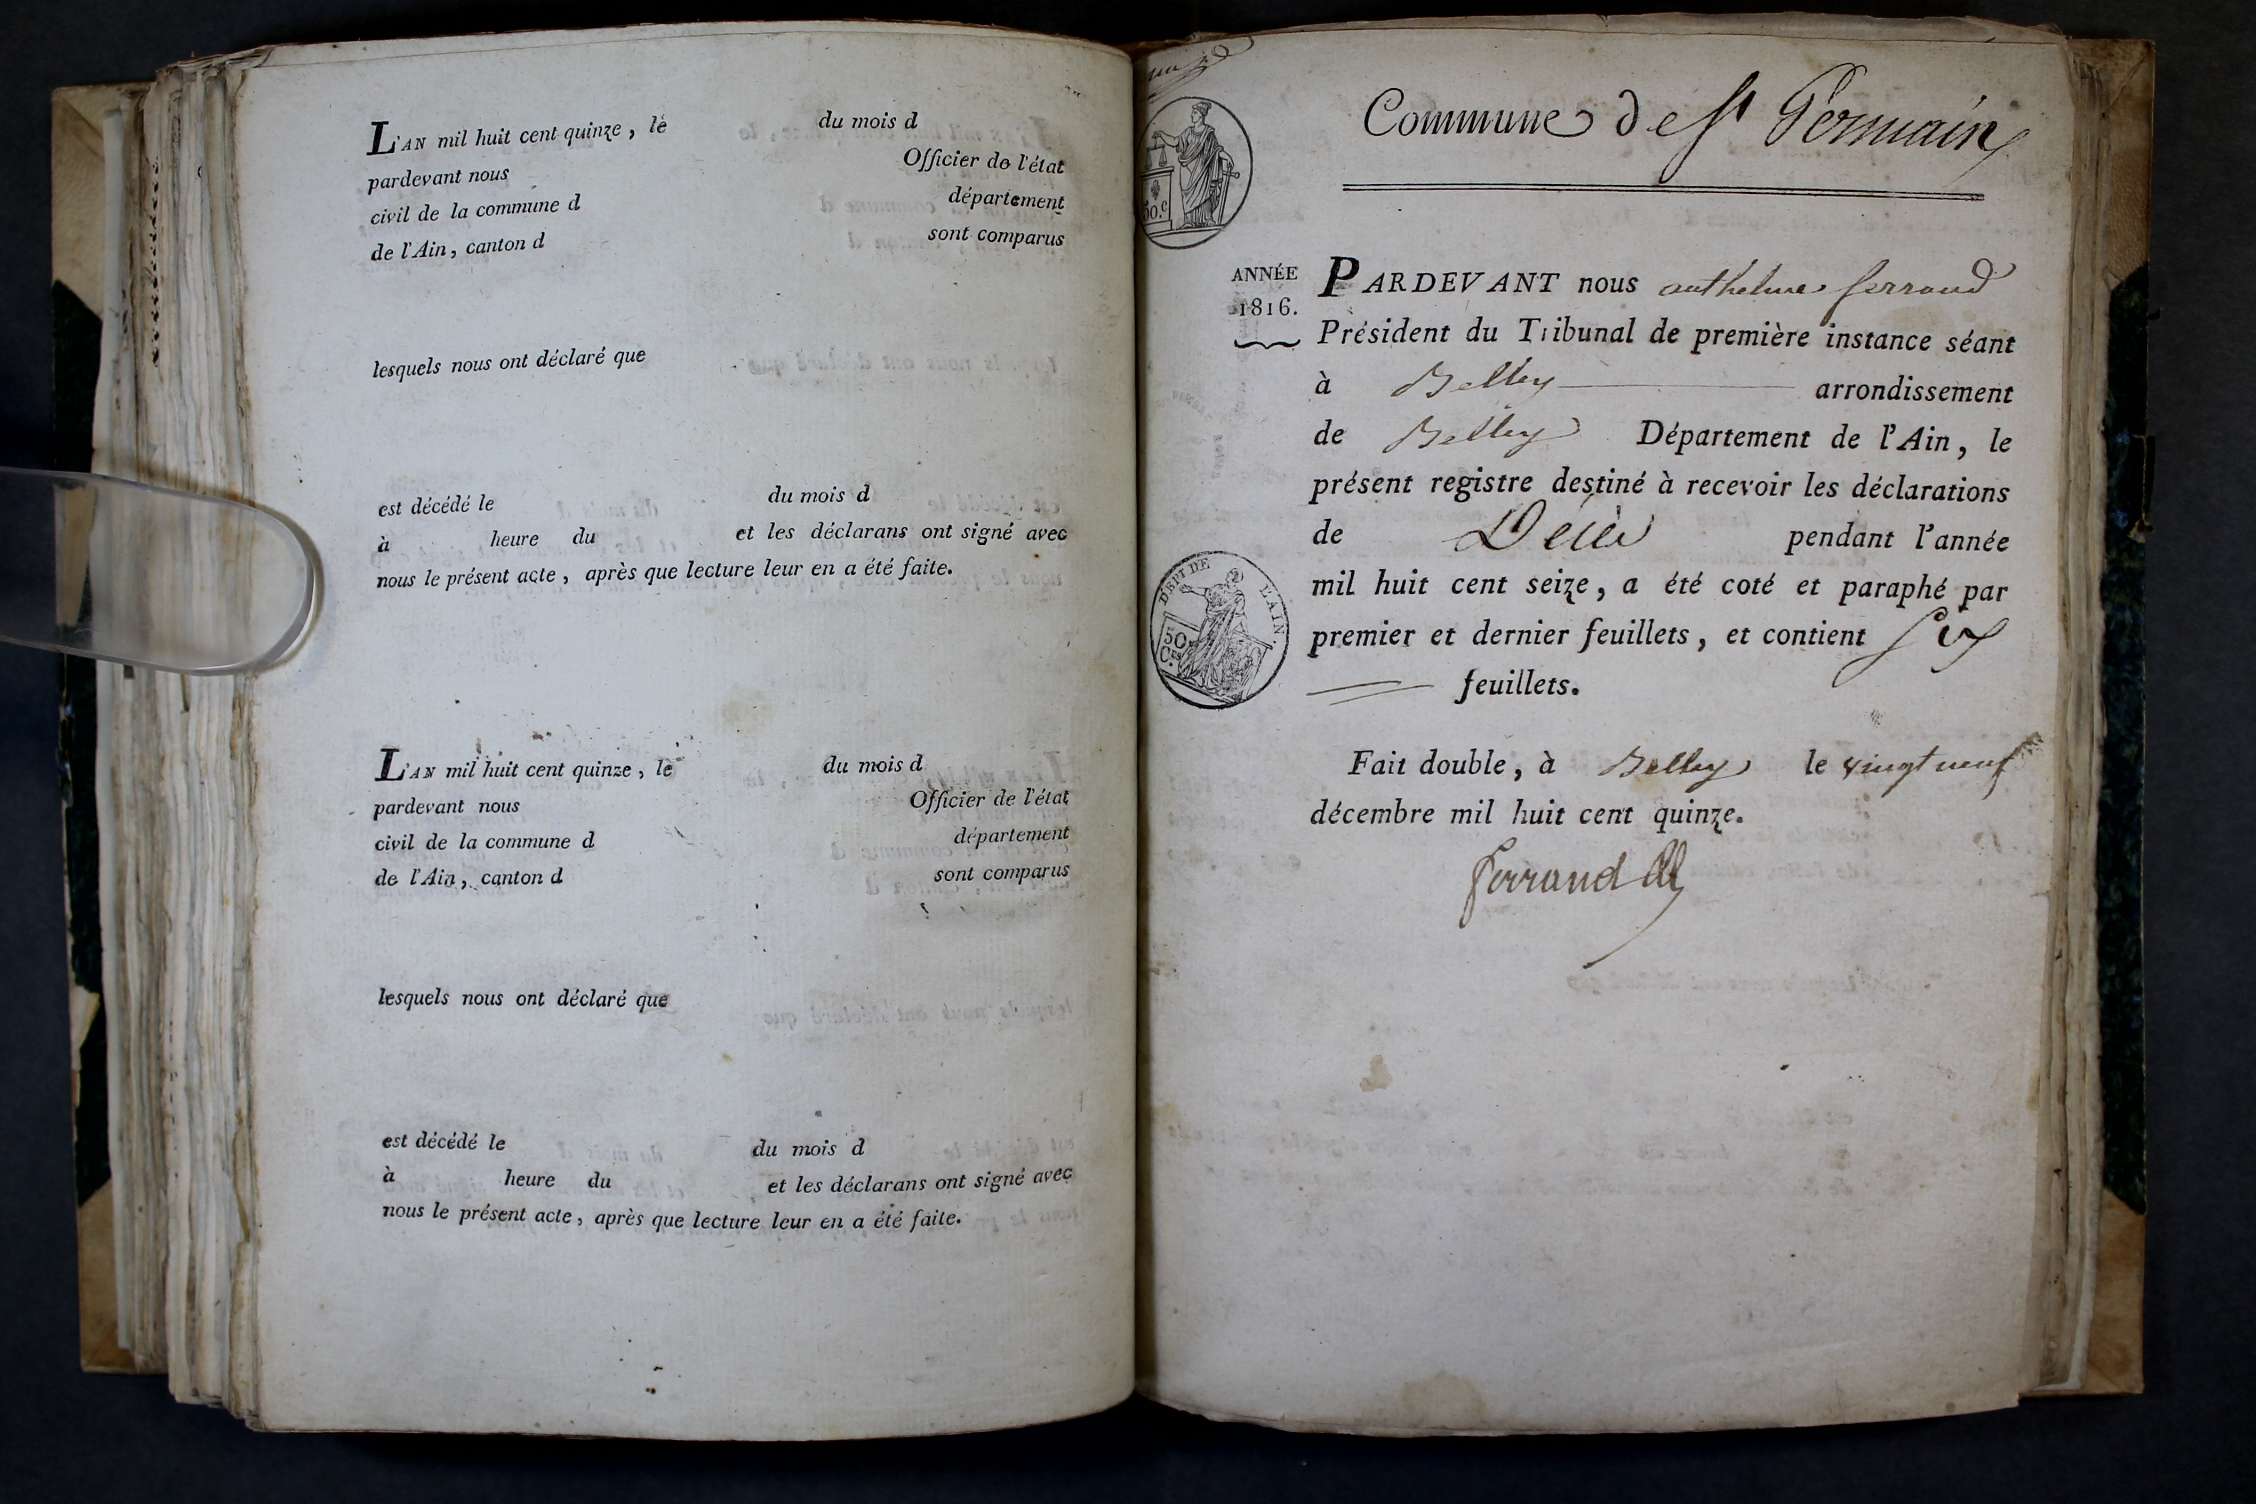 L'AN mil huit cent quinze, le du mois d
pardevant nous Officier de l'état
civil de la commune d département
de l'Ain, canton d sont comparus
lesquels nous ont déclaré que
est décédé le du mois d
à heure du et les déclarans ont signé avec
nous le présent acte, après que lecture leur en a été faite.
L'AN mil huit cent quinze, le du mois d
pardevant nous Officier de l'état
civil de la commune d département
de l'Ain, canton d sont comparus
lesquels nous ont déclaré que
est décédé le du mois d
à heure du et les déclarans ont signé avec
nous le présent acte, après que lecture leur en a été faite.
Commune de St Germain
50.c
ANNÉE
1816.
PARDEVANT nous anthelme ferrand
Président du Tribunal de première instance séant
à Belley arrondissement
de Belley Département de l'Ain, le
présent registre destiné à recevoir les déclarations
de Décès pendant l'année
mil huit cent seize, a été coté et paraphé par
premier et dernier feuillets, et contient six
feuillets.
DEPT DE L'AIN.
50
Ces
Fait double, à Belley le vingt neuf
décembre mil huit cent quinze.
ferrand